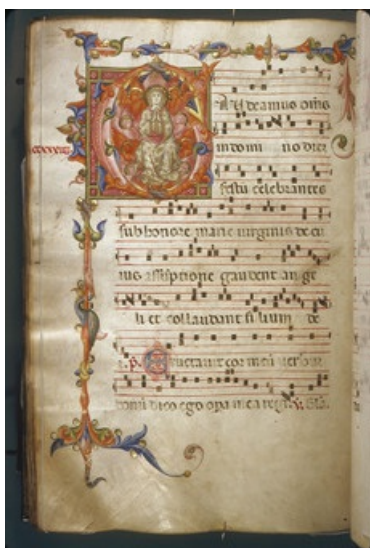 GAUdeamus omīs
indomi no diez
festū celebrantes
sub honore marie uirginis de cu
ius assūptione gaudent ange
li et collaudant filium de
i. p̄. Eructauit cor meū uerbū
bonū dico ego opa mea regi. V. Gla.